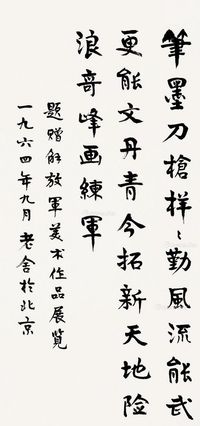 筆墨刀槍样々勤風流能武
更能文丹青今拓新天地险
浪奇峰画練軍
题赠解放軍美术作品展览
一九六四年九月老舍於北京